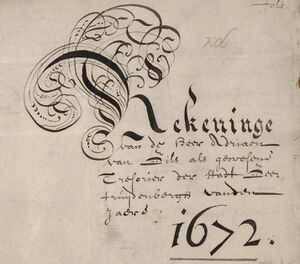 fol:
206
Rekeninge
van de Heer Adriaen
van Gils als gewesene
Tresorier der Stadt Geer
truijdenbergh vanden
Jaere
1672.